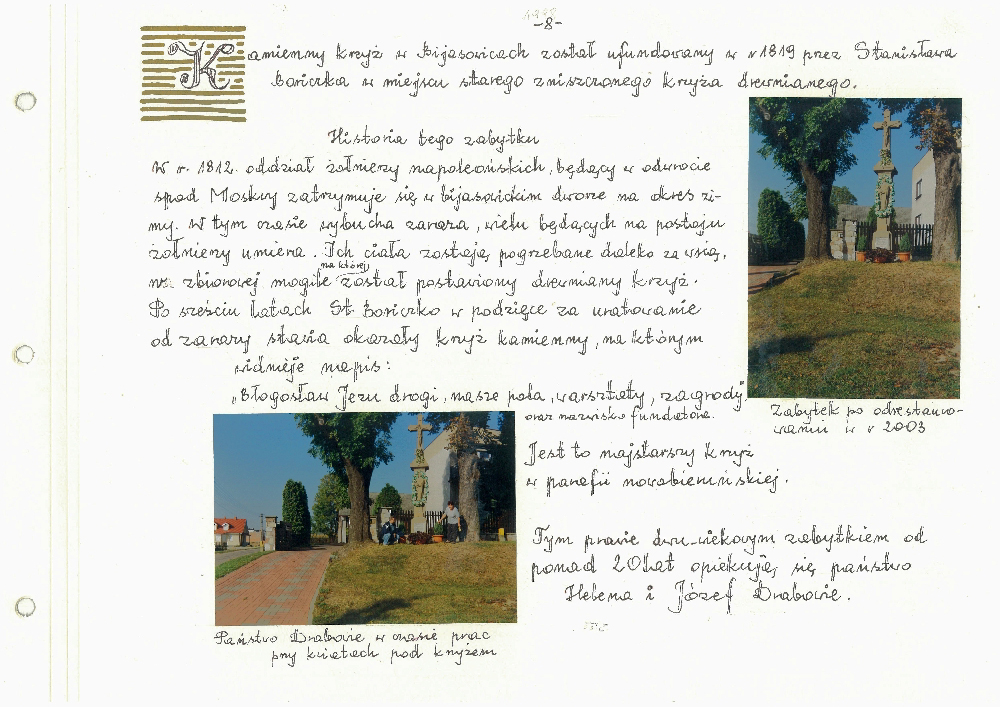 -8-
Kamienny krzyż w Bijasowicach został ufundowany w r 1819 przez Stanisława
Boriczka w miejscu starego zniszczonego krzyża drewnianego.
Historia tego zabytku
W r. 1812. oddział żołnierzy napoleońskich, będący w odwrocie
spod Moskwy zatrzymuje się w bijasowickim dworze na okres zi-
my. W tym czasie wybucha zaraza, wielu będących na postoju
żołnierzy umiera. Ich ciała zostają pogrzebane daleko za wsią,
we zbiorowej mogile na której został postawiony drewniany krzyż.
Po sześciu latach St. Boriczko w podzięce za uratowanie
od zarazy stawia okazały krzyż kamienny, na którym
widnieje napis:
„Błogosław Jezu drogi, nasze pola, warsztaty, zagrody"
oraz nazwisko fundatora.
Zabytek po odrestauro-
waniu w r 2003
Jest to najstarszy krzyż
w parafii nowobieruńskiej.
Tym prawie dwu-wiekowym zabytkiem od
ponad 20 lat opiekują się państwo
Helena i Józef Drabowie.
Państwo Drabowie w czasie prac
przy kwiatach pod krzyżem